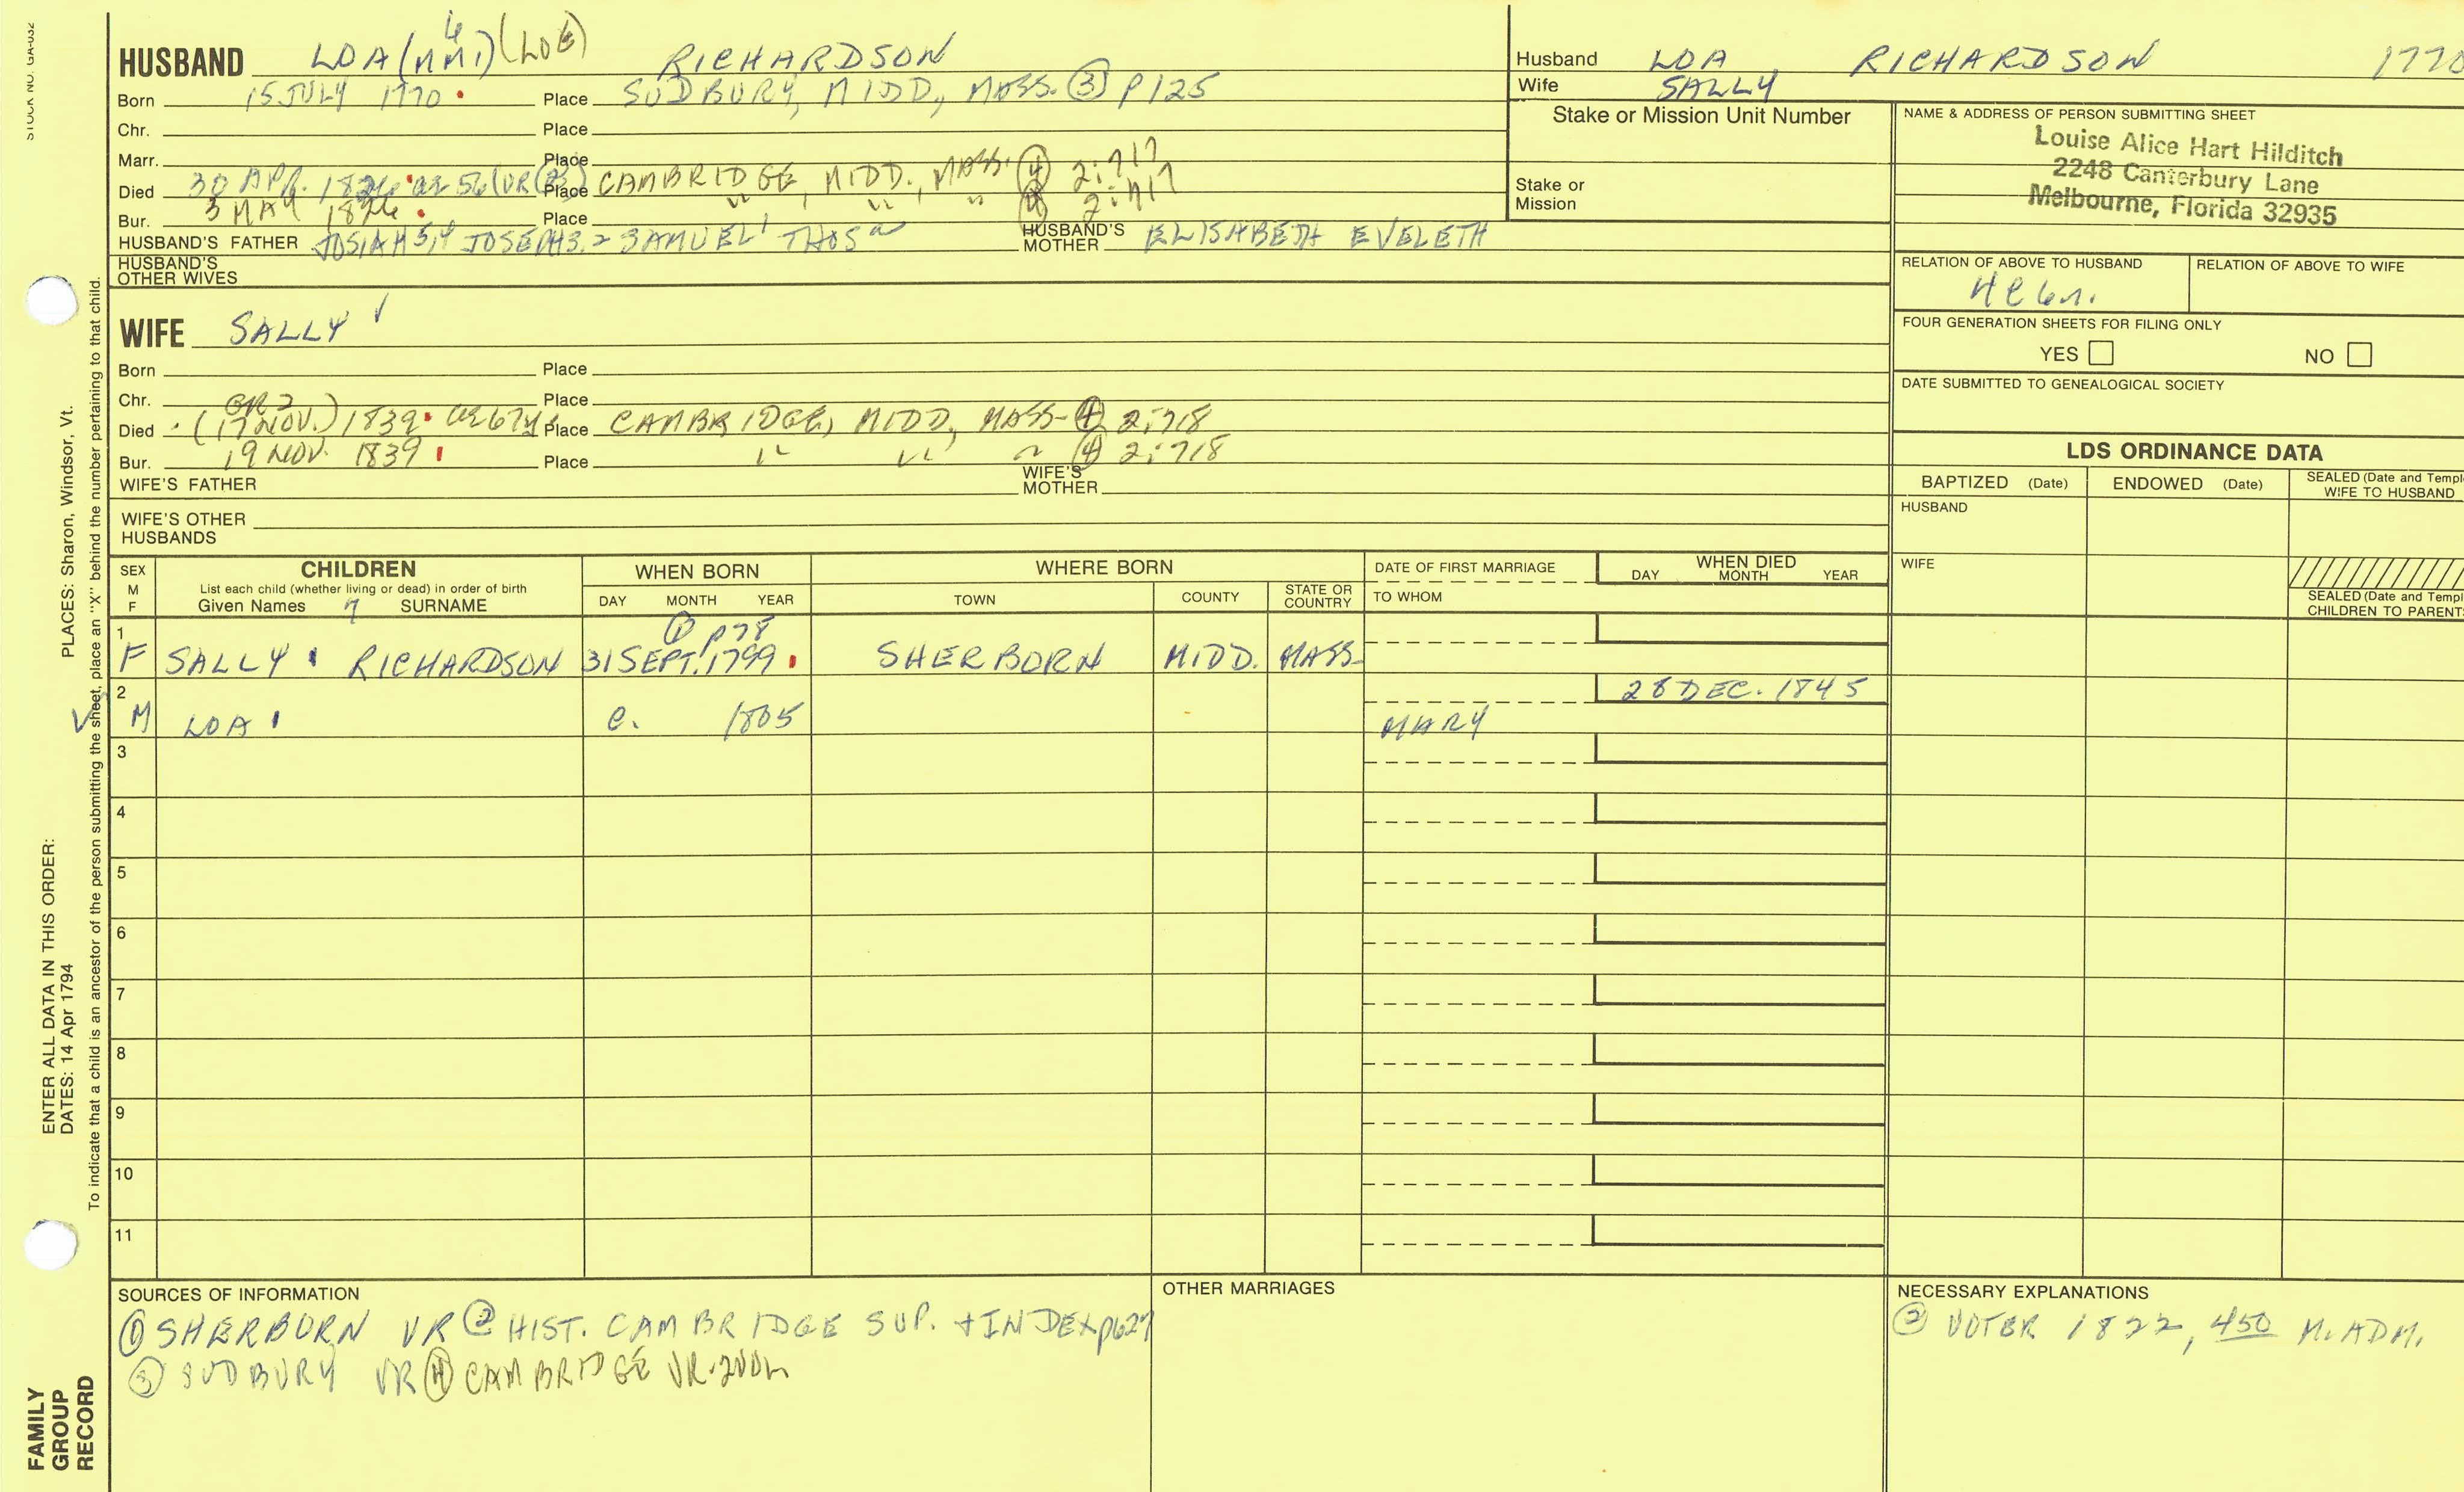 STOCK NO. GA-032
HUSBAND LOA (NMI) (LOE) 6 RICHARDSON
Born 15 JULY 1770 Place SUDBURY, MIDD., MASS. ③ P125
Chr. Place
Marr. Place
Died 30 APR. 1826 ae 56 (VR Place CAMBRIDGE, MIDD., MASS. ④ 2:717
Bur. 3 MAY 1826 Place " , " " ④ 2:717
HUSBAND'S FATHER JOSIAH 5,4 JOSEPH 3,2 SAMUEL 1 THOS HUSBAND'S MOTHER ELISABETH EVELETH
HUSBAND'S OTHER WIVES
WIFE SALLY
Born Place
Chr. Place
Died (17 NOV.) 1839 ae 67y Place CAMBRIDGE, MIDD, MASS- ④ 2:718
Bur. 19 NOV. 1839 Place " " " ④ 2:718
WIFE'S FATHER WIFE'S MOTHER
WIFE'S OTHER HUSBANDS
Husband LOA RICHARDSON 1770
Wife SALLY
Stake or Mission Unit Number
Stake or Mission
NAME & ADDRESS OF PERSON SUBMITTING SHEET
Louise Alice Hart Hilditch
2248 Canterbury Lane
Melbourne, Florida 32935
RELATION OF ABOVE TO HUSBAND RELATION OF ABOVE TO WIFE
FOUR GENERATION SHEETS FOR FILING ONLY
YES NO
DATE SUBMITTED TO GENEALOGICAL SOCIETY
LDS ORDINANCE DATA
BAPTIZED (Date) ENDOWED (Date) SEALED (Date and Templ
WIFE TO HUSBAND
HUSBAND
WIFE
SEALED (Date and Templ
CHILDREN TO PARENT
SEX M F
CHILDREN
List each child (whether living or dead) in order of birth
Given Names 7 SURNAME
WHEN BORN
DAY MONTH YEAR
WHERE BORN
TOWN COUNTY STATE OR COUNTRY
DATE OF FIRST MARRIAGE
TO WHOM
WHEN DIED
DAY MONTH YEAR
① P78
1 F SALLY RICHARDSON 31 SEPT. 1799 SHERBORN MIDD. MASS-
28 DEC. 1845
2 M LOA c. 1805 MARY
3
4
5
6
7
8
9
10
11
SOURCES OF INFORMATION
① SHERBORN VR ② HIST. CAMBRIDGE SUP. + INDEX p627
③ SUDBURY VR ④ CAMBRIDGE VR.
OTHER MARRIAGES
NECESSARY EXPLANATIONS
② VOTER 1822, 450 M. ADM.
PLACES: Sharon, Windsor, Vt.
ENTER ALL DATA IN THIS ORDER:
DATES: 14 Apr 1794
To indicate that a child is an ancestor of the person submitting the sheet, place an "X" behind the number pertaining to that child.
FAMILY
GROUP
RECORD